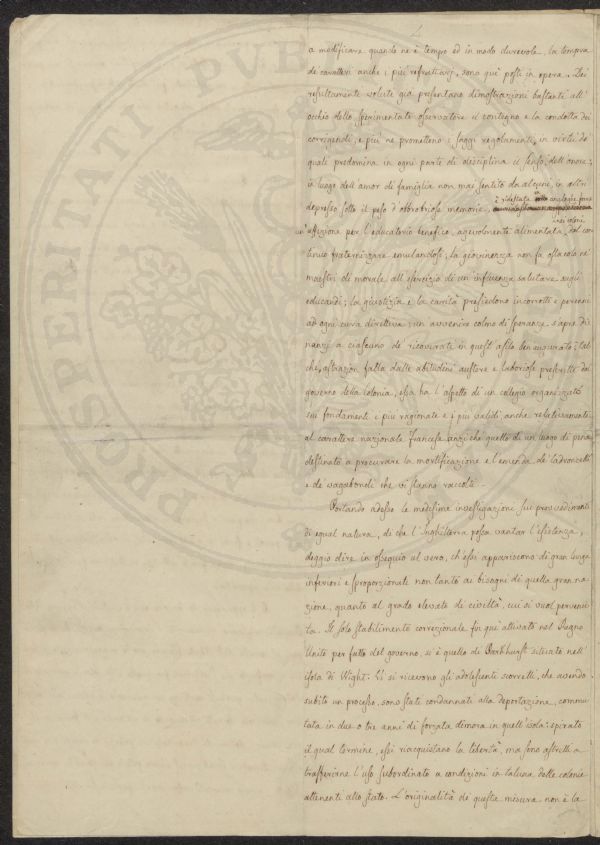 PROSPERITATI PUBLI
a modificare quando ne è tempo ed in modo durevole, la tempra
de' caratteri anche i più refrattarj, sono quì posti in opera. Dei
resultamente volute già presentano dimostrazioni bastanti all'
occhio dello sperimentato osservatore il contegno e la condotta dei
corrigendi, e più ne promettono i saggi regolamenti, in virtù de'
quali predomina in ogni parti di disciplina il senso dell'onore;
in luogo dell'amor di famiglia non mai sentito da alcuni, in altri
depresso sotto il peso d'obbrobriose memorie,
è ridestata analogia forse
nei coloni
un'affezione per l'educatorio benefico, agevolmente alimentata dal con
tinuo fraternizzare emulandosi; la giovinezza non fa ostacolo ne'
maestri di morale all'esercizio di un'influenza salutare sugli
educandi; la giustizia e la carità presiedono incorrotti e perenni
ad ogni cura direttiva; un avvenire colmo di speranze s'apre di
nanzi a ciascuno de' ricovirati in quest'asilo ben augurato: tal
chè, astrazion fatta dalle abitudini austere e laboriose prescritte dal
governo della colonia, essa ha l'aspetto di un collegio organizzato
sui fondamenti i più ragionati e i più validi, anche relativamente
al carattere nazionale francese, anzi chè quello di un luogo di pena
destinato a procurare la mortificazione e l'emenda de' ladroncelli
e de' vagabondi che vi stanno raccolti.
Portando adesso le medisime investigazioni sui provvedimenti
di egual natura, di che l'Inghilterra possa vantar l'esistenza,
deggio dire in ossequio al vero, ch'essi appariscono di gran lunga
inferiori e sproporzionati non tanto ai bisogni di quella gran na
zione, quanto al grado elevato di civiltà, cui si vuol pervenu
ta. Il solo stabilimento correzionale fin quì attivato nel Regno
Unito per fatto del governo, si è quello di Parkhurst situato nell'
isola di Wight. Vi si ricevono gli adolescenti scorretti, che avendo
subito un processo, sono stati condannati alla deportazione, commu
tata in due o tre anni di forzata dimora in quell'isola: spirato
il qual termine, essi riacquistano la libertà, ma sono astretti a
trasferirne l'uso subordinato a condizioni in taluna delle colonie
attenenti allo stato. L'originalità di questa misura non è la